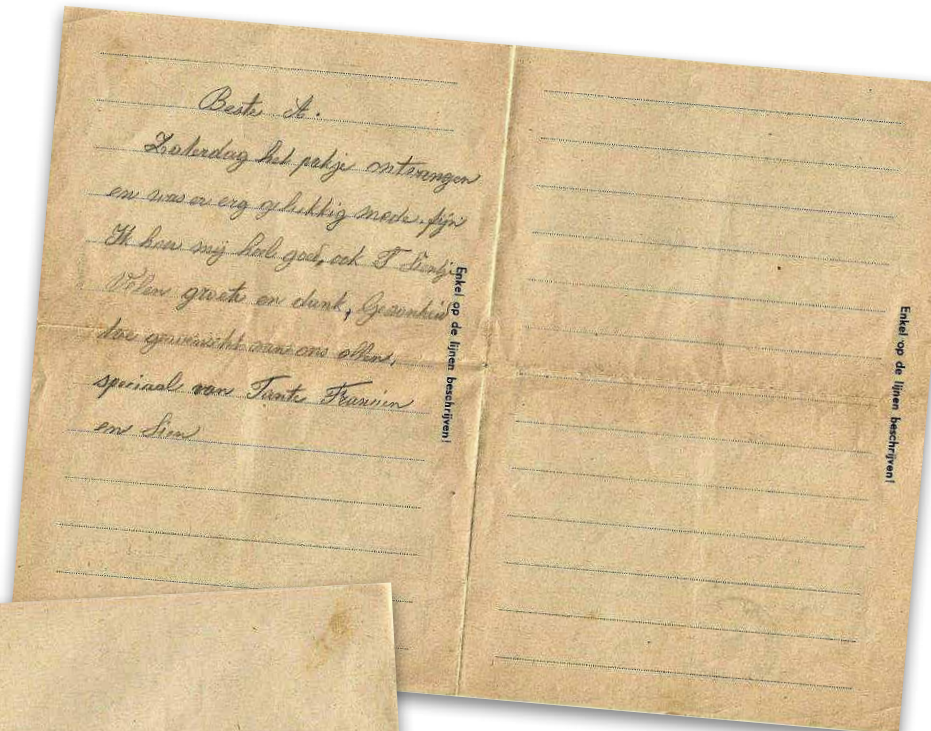 Beste A.
Zaterdag het pakje ontvangen
en was er erg gelukkig mede. fijn
Ik hou mij heel goed, ook T Sientj.
Velen groete en dank, Gezonheid
toe gewenscht van ons allen,
speciaal van Tante Francien
en Sien
Enkel op de lijnen beschrijven!
Enkel op de lijnen beschrijven!